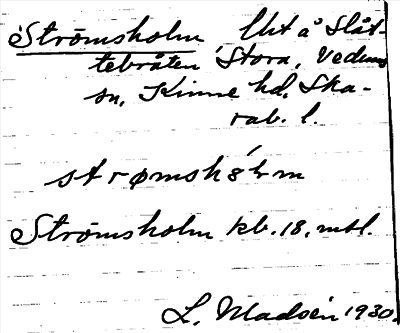 Strömsholm lht å Slåt-
tebråten Stora, Vedums
sn, Kinne hd, Ska-
rab. l.
strømshólm
Strömsholm kb. 18, mtl.
L. Madsén 1930.